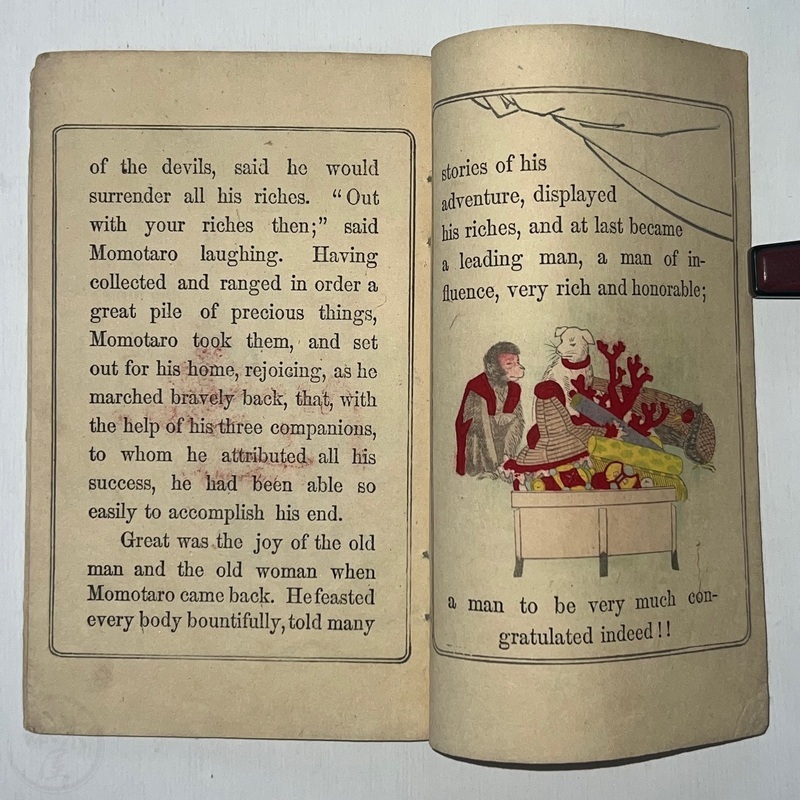 of the devils, said he would
surrender all his riches. "Out
with your riches then;" said
Momotaro laughing. Having
collected and ranged in order a
great pile of precious things,
Momotaro took them, and set
out for his home, rejoicing, as he
marched bravely back, that, with
the help of his three companions,
to whom he attributed all his
success, he had been able so
easily to accomplish his end.
Great was the joy of the old
man and the old woman when
Momotaro came back. He feasted
every body bountifully, told many
stories of his
adventure, displayed
his riches, and at last became
a leading man, a man of in-
fluence, very rich and honorable;
a man to be very much con-
gratulated indeed!!